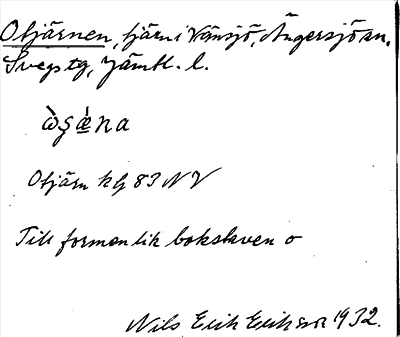 Otjärnen, tjärn i Vänsjö, Ängersjö sn,
Svegs tg, Jämtl. l.
ὼʂǽna
Otjärn kg 83 NV
Till formen lik bokstaven o
Nils Erik Eriksson 1932.